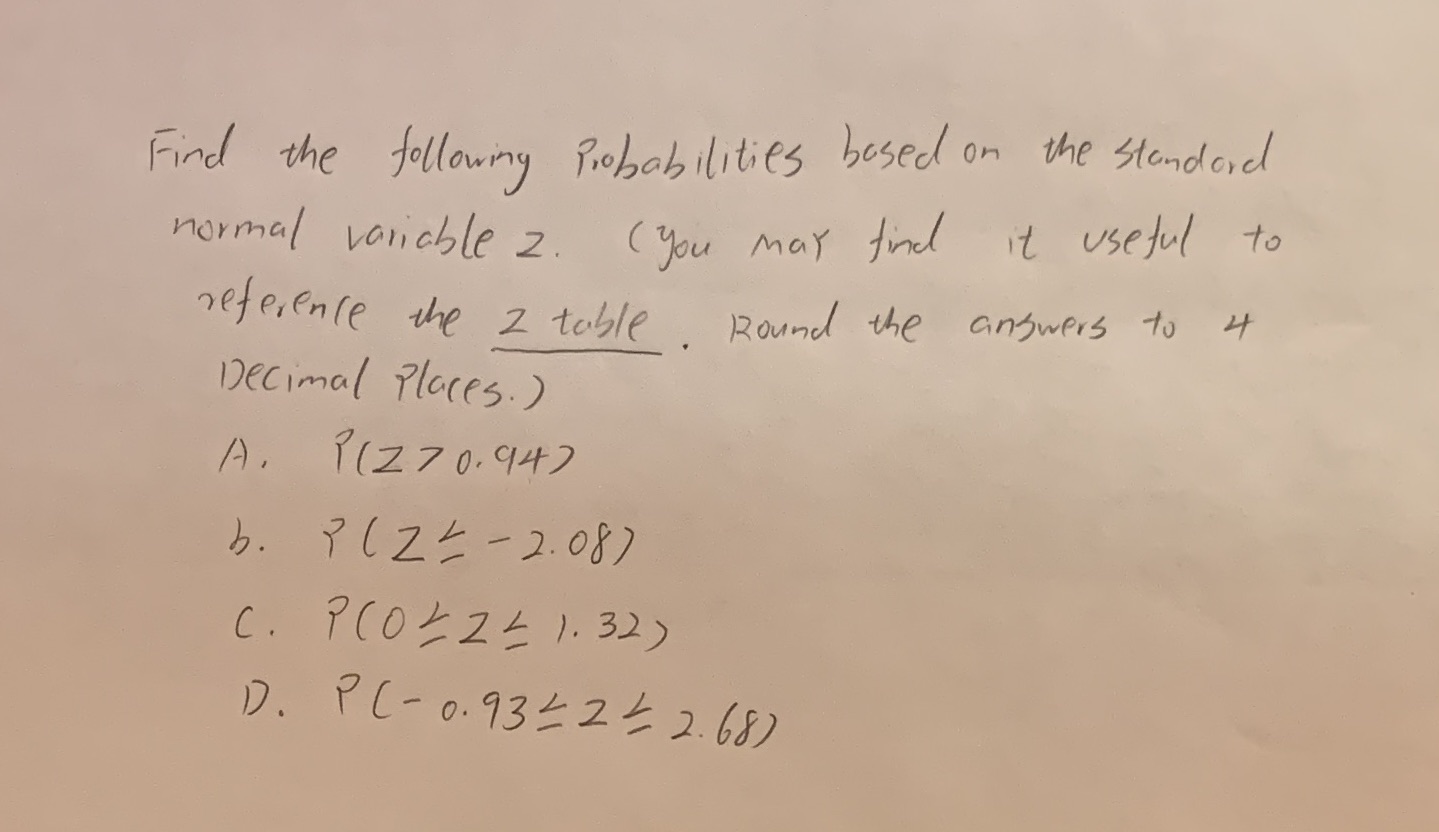 Find the following Probabilities based on the standard
normal variable z. (you may find it useful to
reference the z table. Round the answers to 4
Decimal Places.)
A. P(Z > 0.94)
b. P(Z ≤ -2.08)
C. P(0 ≤ Z ≤ 1.32)
D. P(-0.93 ≤ Z ≤ 2.68)